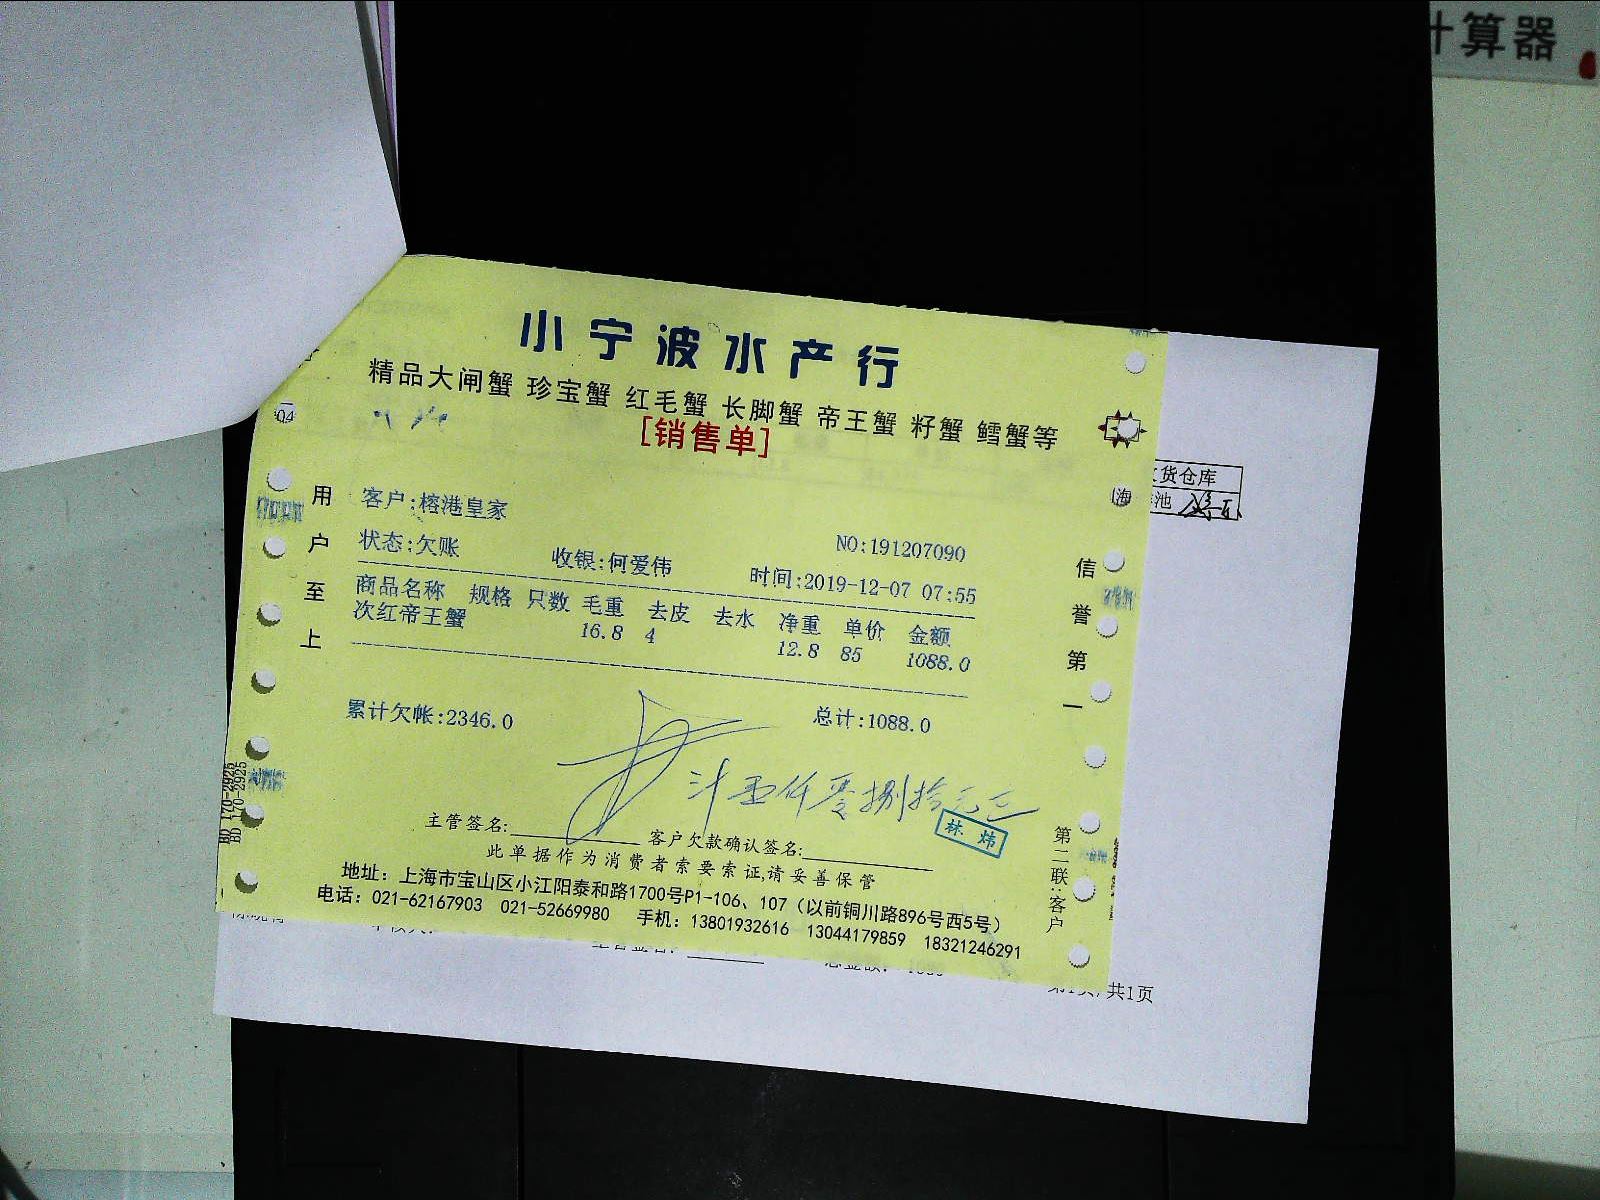 计算器
小宁波水产行
精品大闸蟹 珍宝蟹 红毛蟹 长脚蟹 帝王蟹 籽蟹 鳕蟹等
[销售单]
04
货仓库
海
池
用户至上
客户:榕港皇家
状态:欠账 收银:何爱伟 NO:191207090
时间:2019-12-07 07:55
商品名称 规格 只数 毛重 去皮 去水 净重 单价 金额
次红帝王蟹 16.8 4 12.8 85 1088.0
累计欠帐:2346.0 总计:1088.0
信誉第一
仟零捌拾
林炜
主管签名: 客户欠款确认签名:
此单据作为消费者索要索证,请妥善保管
地址：上海市宝山区小江阳泰和路1700号P1-106、107（以前铜川路896号西5号）
电话：021-62167903 021-52669980 手机：13801932616 13044179859 18321246291
第二联:客户
BD 170-2925
BD 170-2925
第1页/共1页